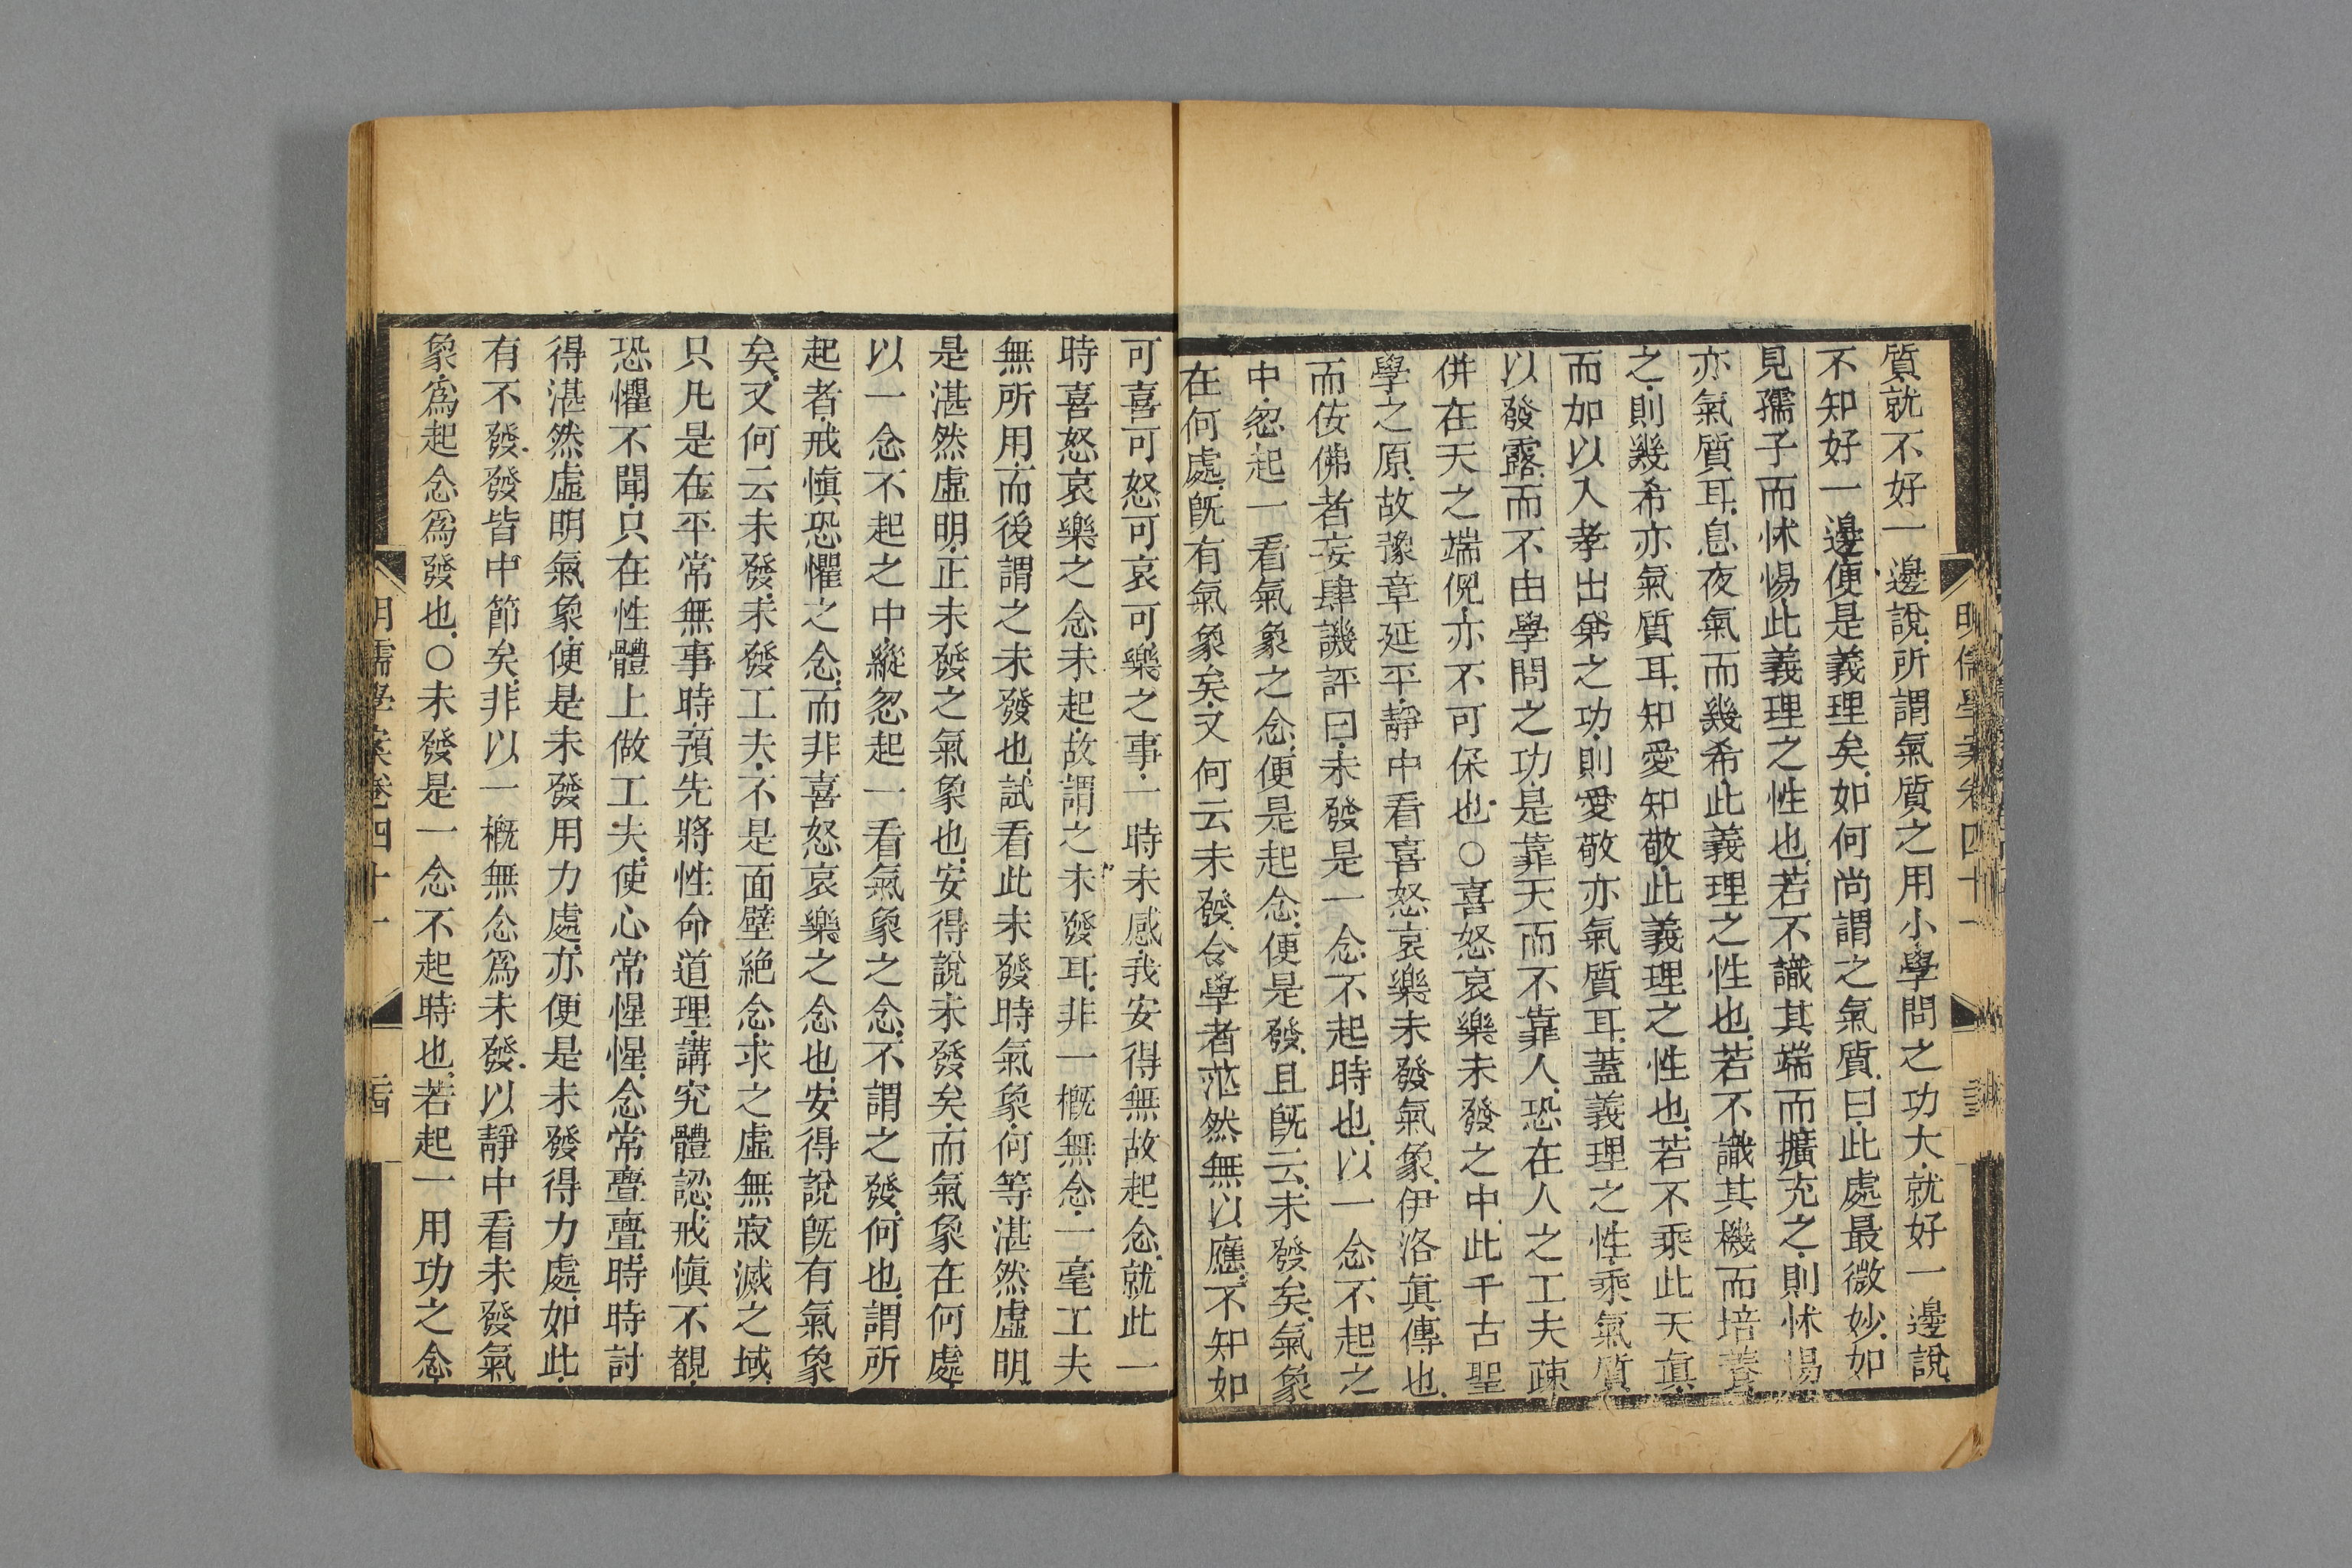 質就不好一邊說所謂氣質之用小學問之功大就好一邊說
不知好一邊便是義理矣如何尚謂之氣質曰此處最微妙如
見孺子而怵惕此義理之性也若不識其端而擴充之則怵惕
亦氣質耳息夜氣而幾希此義理之性也若不識其機而培養
之則幾希亦氣質耳知愛知敬此義理之性也若不乘此天眞
而加以入孝出弟之功則愛敬亦氣質耳蓋義理之性乘氣質
以發露而不由學問之功是靠天而不靠人恐在人之工夫疎
併在天之端倪亦不可保也○喜怒哀樂未發之中此千古聖
學之原故豫章延平靜中看喜怒哀樂未發氣象伊洛眞傳也
而佞佛者妄肆譏評曰未發是一念不起時也以一念不起之
中忽起一看氣象之念便是起念便是發且旣云未發矣氣象
在何處旣有氣象矣又何云未發令學者茫然無以應不知如
可喜可怒可哀可樂之事一時未感我安得無故起念就此一
時喜怒哀樂之念未起故謂之未發耳非一槪無念一毫工夫
無所用而後謂之未發也試看此未發時氣象何等湛然虛明
是湛然虛明正未發之氣象也安得說未發矣而氣象在何處
以一念不起之中縱忽起一看氣象之念不謂之發何也謂所
起者戒愼恐懼之念而非喜怒哀樂之念也安得說旣有氣象
矣又何云未發未發工夫不是面壁絶念求之虛無寂滅之域
只凡是在平常無事時預先將性命道理講究體認戒愼不覩
恐懼不聞只在性體上做工夫使心常惺惺念常亹亹時時討
得湛然虛明氣象便是未發用力處亦便是未發得力處如此
有不發發皆中節矣非以一槪無念爲未發以靜中看未發氣
象爲起念爲發也○未發是一念不起時也若起一用功之念
明儒學案卷四十一